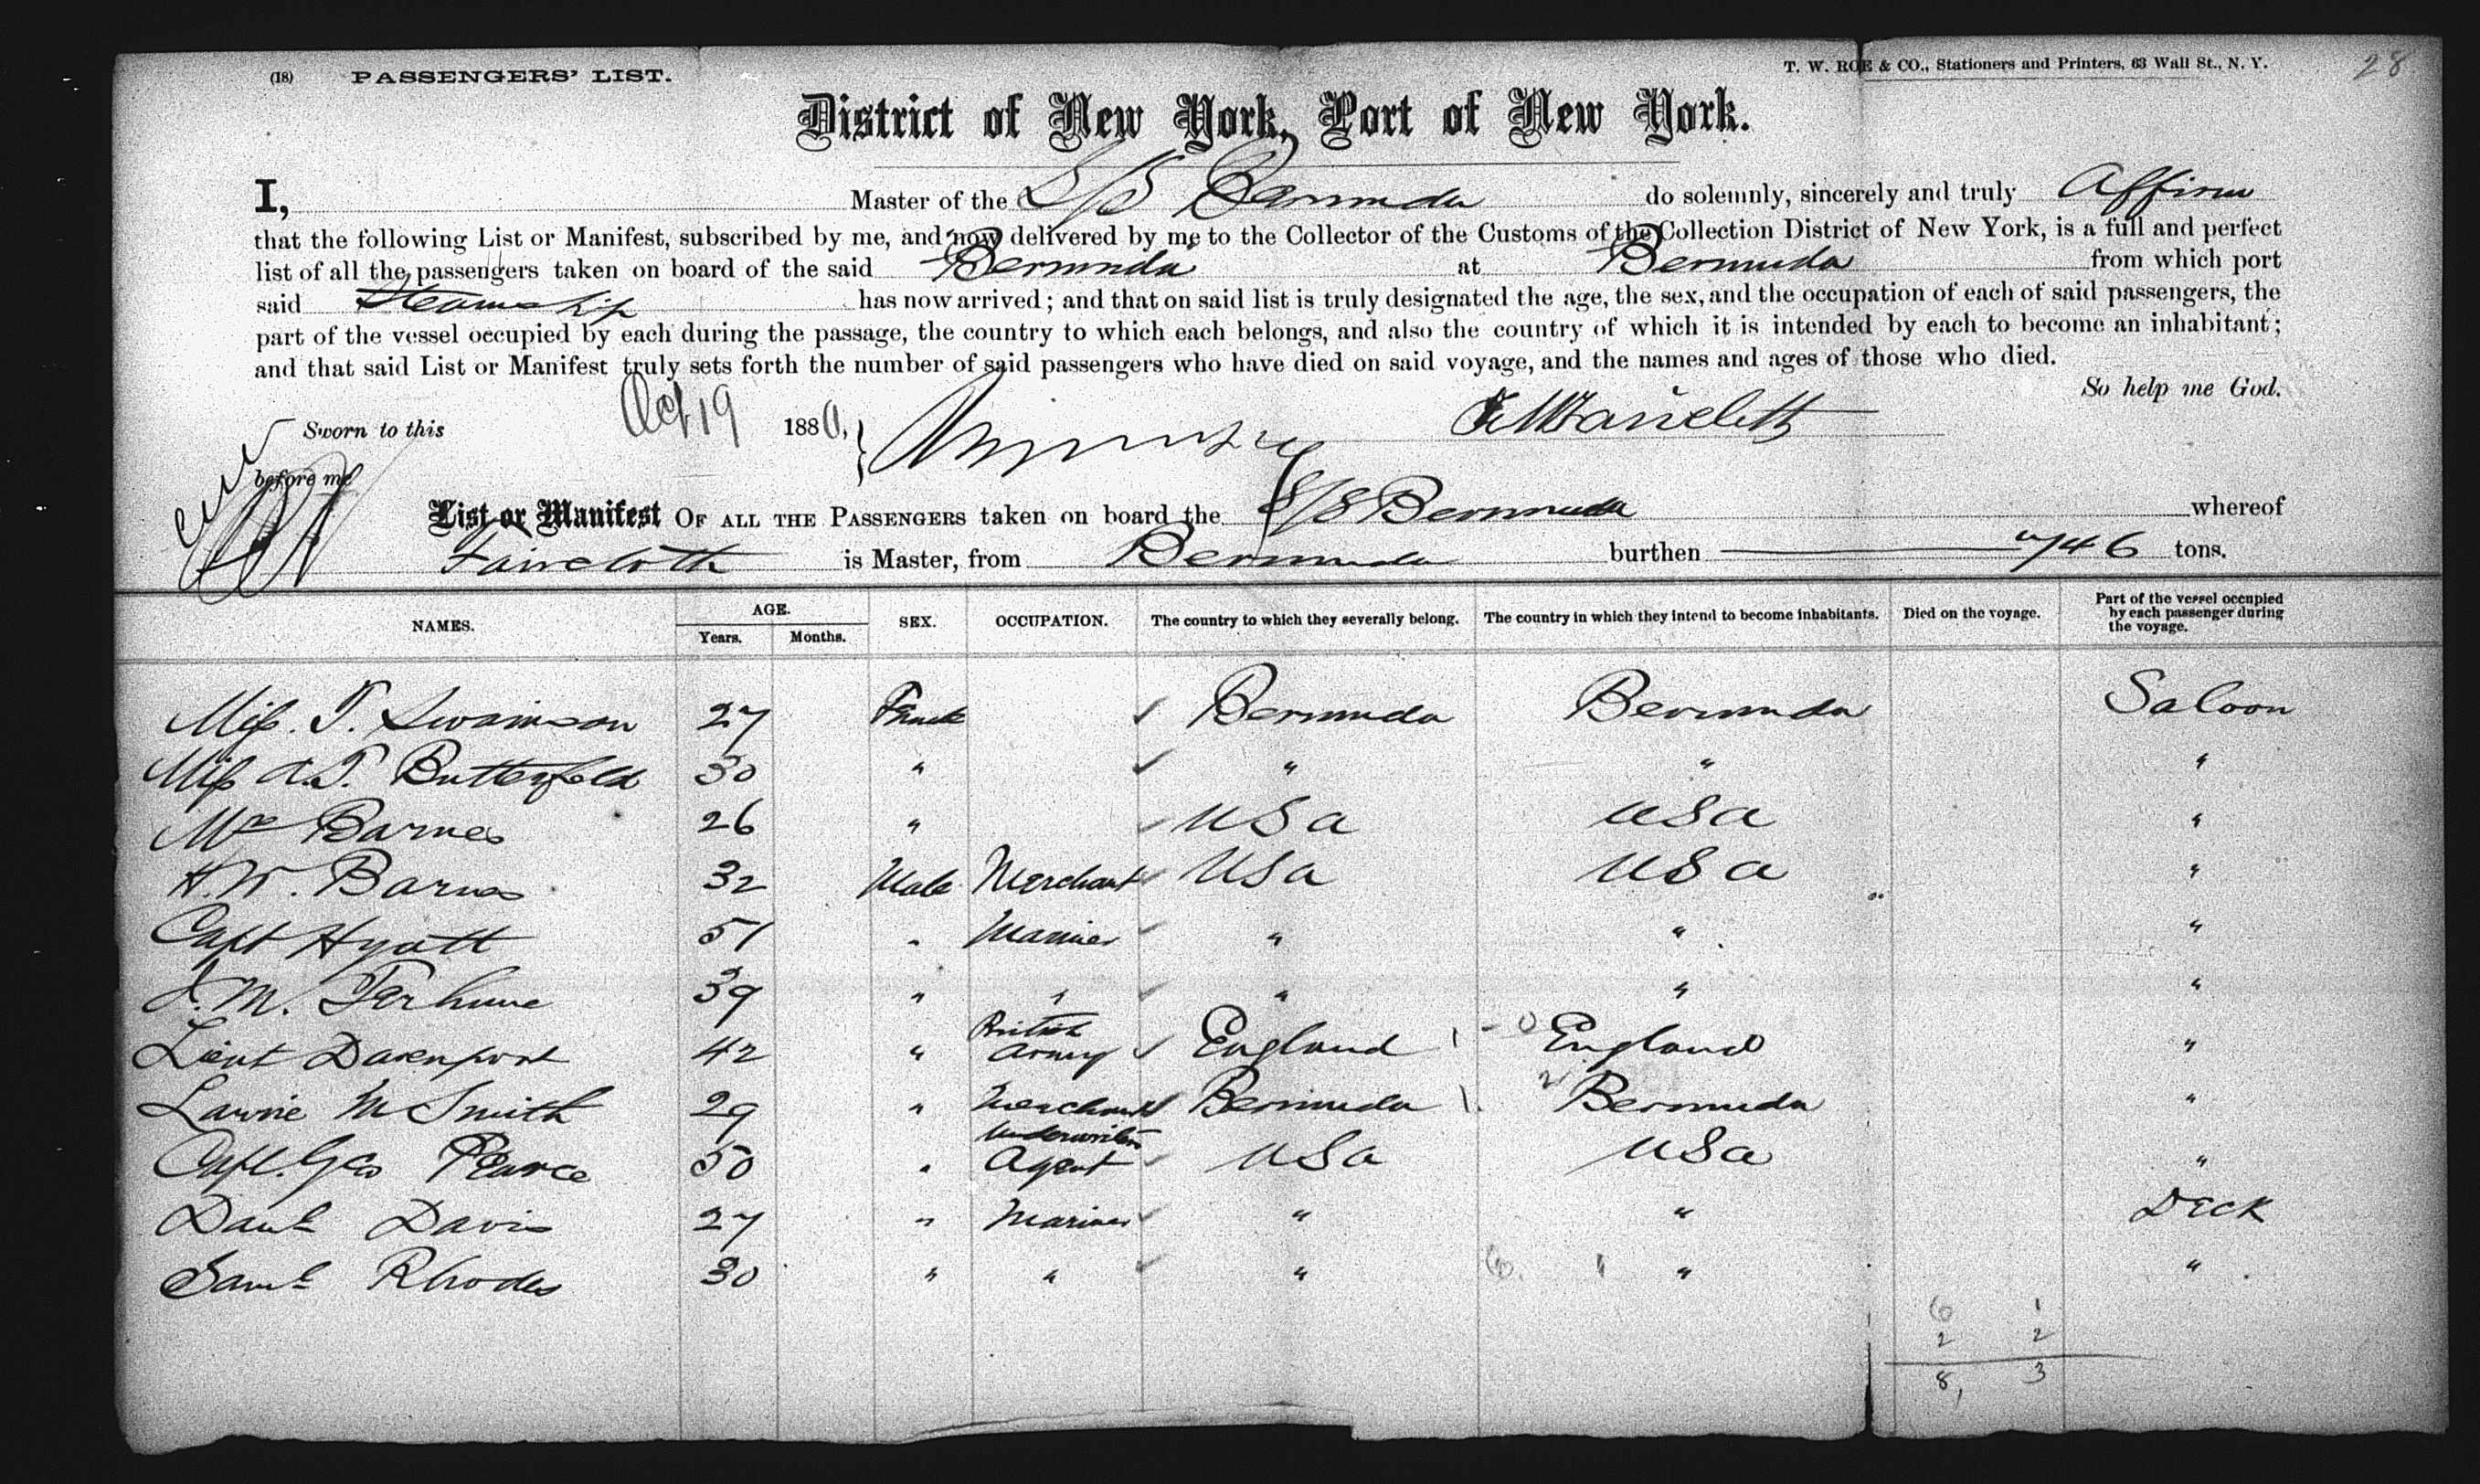 (18) PASSENGERS' LIST. T. W. ROE & CO., Stationers and Printers, 63 Wall St., N. Y. 28
District of New York, Port of New York.
I, Master of the S/S Bermuda do solemnly, sincerely and truly Affirm
that the following List or Manifest, subscribed by me, and now delivered by me to the Collector of the Customs of the Collection District of New York, is a full and perfect
list of all the passengers taken on board of the said Bermuda at Bermuda from which port
said Steamship has now arrived; and that on said list is truly designated the age, the sex, and the occupation of each of said passengers, the
part of the vessel occupied by each during the passage, the country to which each belongs, and also the country of which it is intended by each to become an inhabitant;
and that said List or Manifest truly sets forth the number of said passengers who have died on said voyage, and the names and ages of those who died.
So help me God.
Sworn to this Oct 19 1880,
before me
List or Manifest OF ALL THE PASSENGERS taken on board the S/S Bermuda whereof
Faircloth is Master, from Bermuda burthen 746 tons.
NAMES. AGE. Years. Months. SEX. OCCUPATION. The country to which they severally belong. The country in which they intend to become inhabitants. Died on the voyage. Part of the vessel occupied by each passenger during the voyage.
Miss. T. Swainson 27 Female Bermuda Bermuda Saloon
Miss A.T. Butterfield 30 " " " "
Mrs Barnes 26 " USa USa "
H.W. Barnes 32 Male Merchant USa USa "
Capt Hyatt 51 " Mariner " " "
J. M. Terhune 39 " " " " "
Lieut Davenport 42 " British Army England England "
Lawrie M Smith 29 " Merchant Bermuda Bermuda "
Capt. Geo Pearce 50 " Underwriters Agent USa USa "
Danl Davis 27 " Mariner " " Deck
Saml Rhodes 30 " " " " "
6 1
2 2
8, 3